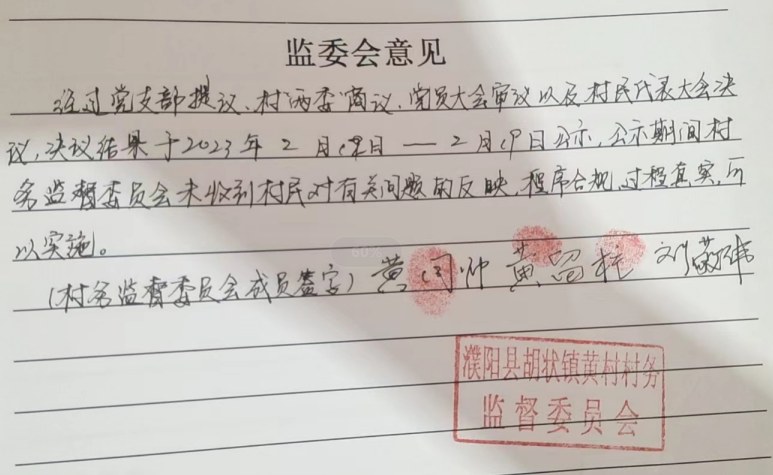 监委会意见
经过党支部提议、村两委商议、党员大会审议以及村民代表大会决
议,决议结果于2023年2月 日—2月19日公示,公示期间村
务监督委员会未收到村民对有关问题的反映,程序合规,过程真实,可
以实施。
(村务监督委员会成员签字)黄 帅 黄 刘
濮阳县胡状镇黄村村务
监督委员会